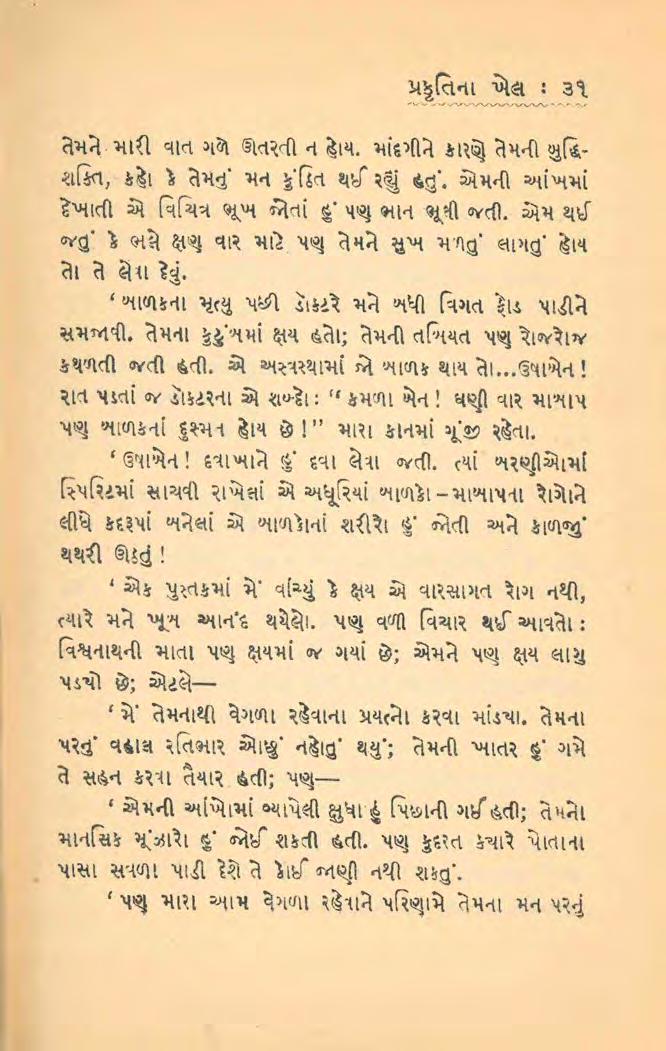 પ્રકૃતિના ખેલ : ૩૧
તેમને મારી વાત ગળે ઊતરતી ન હોય. માંદગીને કારણે તેમની બુદ્ધિ-
શક્તિ, કહો કે તેમનું મન કુંઠિત થઈ રહ્યું હતું. એમની આંખમાં
દેખાતી એ વિચિત્ર ભૂખ જોતાં હું પણ ભાન ભૂલી જતી. એમ થઈ
જતું કે ભલે ક્ષણ વાર માટે પણ તેમને સુખ મળતું લાગતું હોય
તો તે લેવા દેવું.
‘બાળકના મૃત્યુ પછી ડૉક્ટરે મને બધી વિગત ફોડ પાડીને
સમજાવી. તેમના કુટુંબમાં ક્ષય હતો; તેમની તબિયત પણ રોજરોજ
કથળતી જતી હતી. એ અવસ્થામાં જો બાળક થાય તો...ઉષાબેન !
રાત પડતાં જ ડૉક્ટરના એ શબ્દો : “ કમળા બેન ! ઘણી વાર માબાપ
પણ બાળકનાં દુશ્મન હોય છે !” મારા કાનમાં ગૂંજી રહેતા.
‘ઉષાબેન ! દવાખાને હું દવા લેવા જતી. ત્યાં બરણીઓમાં
સ્પિરિટમાં સાચવી રાખેલાં એ અધૂરિયાં બાળકો – માબાપના રોગોને
લીધે કદરૂપાં બનેલાં એ બાળકોનાં શરીરો હું જોતી અને કાળજું
થથરી ઊઠતું !
‘ એક પુસ્તકમાં મેં વાંચ્યું કે ક્ષય એ વારસાગત રોગ નથી,
ત્યારે મને ખૂબ આનંદ થયેલો. પણ વળી વિચાર થઈ આવતો :
વિશ્વનાથની માતા પણ ક્ષયમાં જ ગયાં છે; એમને પણ ક્ષય લાગુ
પડયો છે; એટલે—
‘ મેં તેમનાથી વેગળા રહેવાના પ્રયત્નો કરવા માંડયા. તેમના
પરનું વહાલ રતિભાર ઓછું નહોતું થયું; તેમની ખાતર હું ગમે
તે સહન કરવા તૈયાર હતી; પણ—
‘ એમની આંખોમાં વ્યાપેલી ક્ષુધા હું પિછાની ગઈ હતી; તેમનો
માનસિક મૂંઝારો હું જોઈ શકતી હતી. પણ કુદરત કયારે પોતાના
પાસા સવળા પાડી દેશે તે કોઈ જાણી નથી શકતું.
‘ પણ મારા આમ વેગળા રહેવાને પરિણામે તેમના મન પરનું